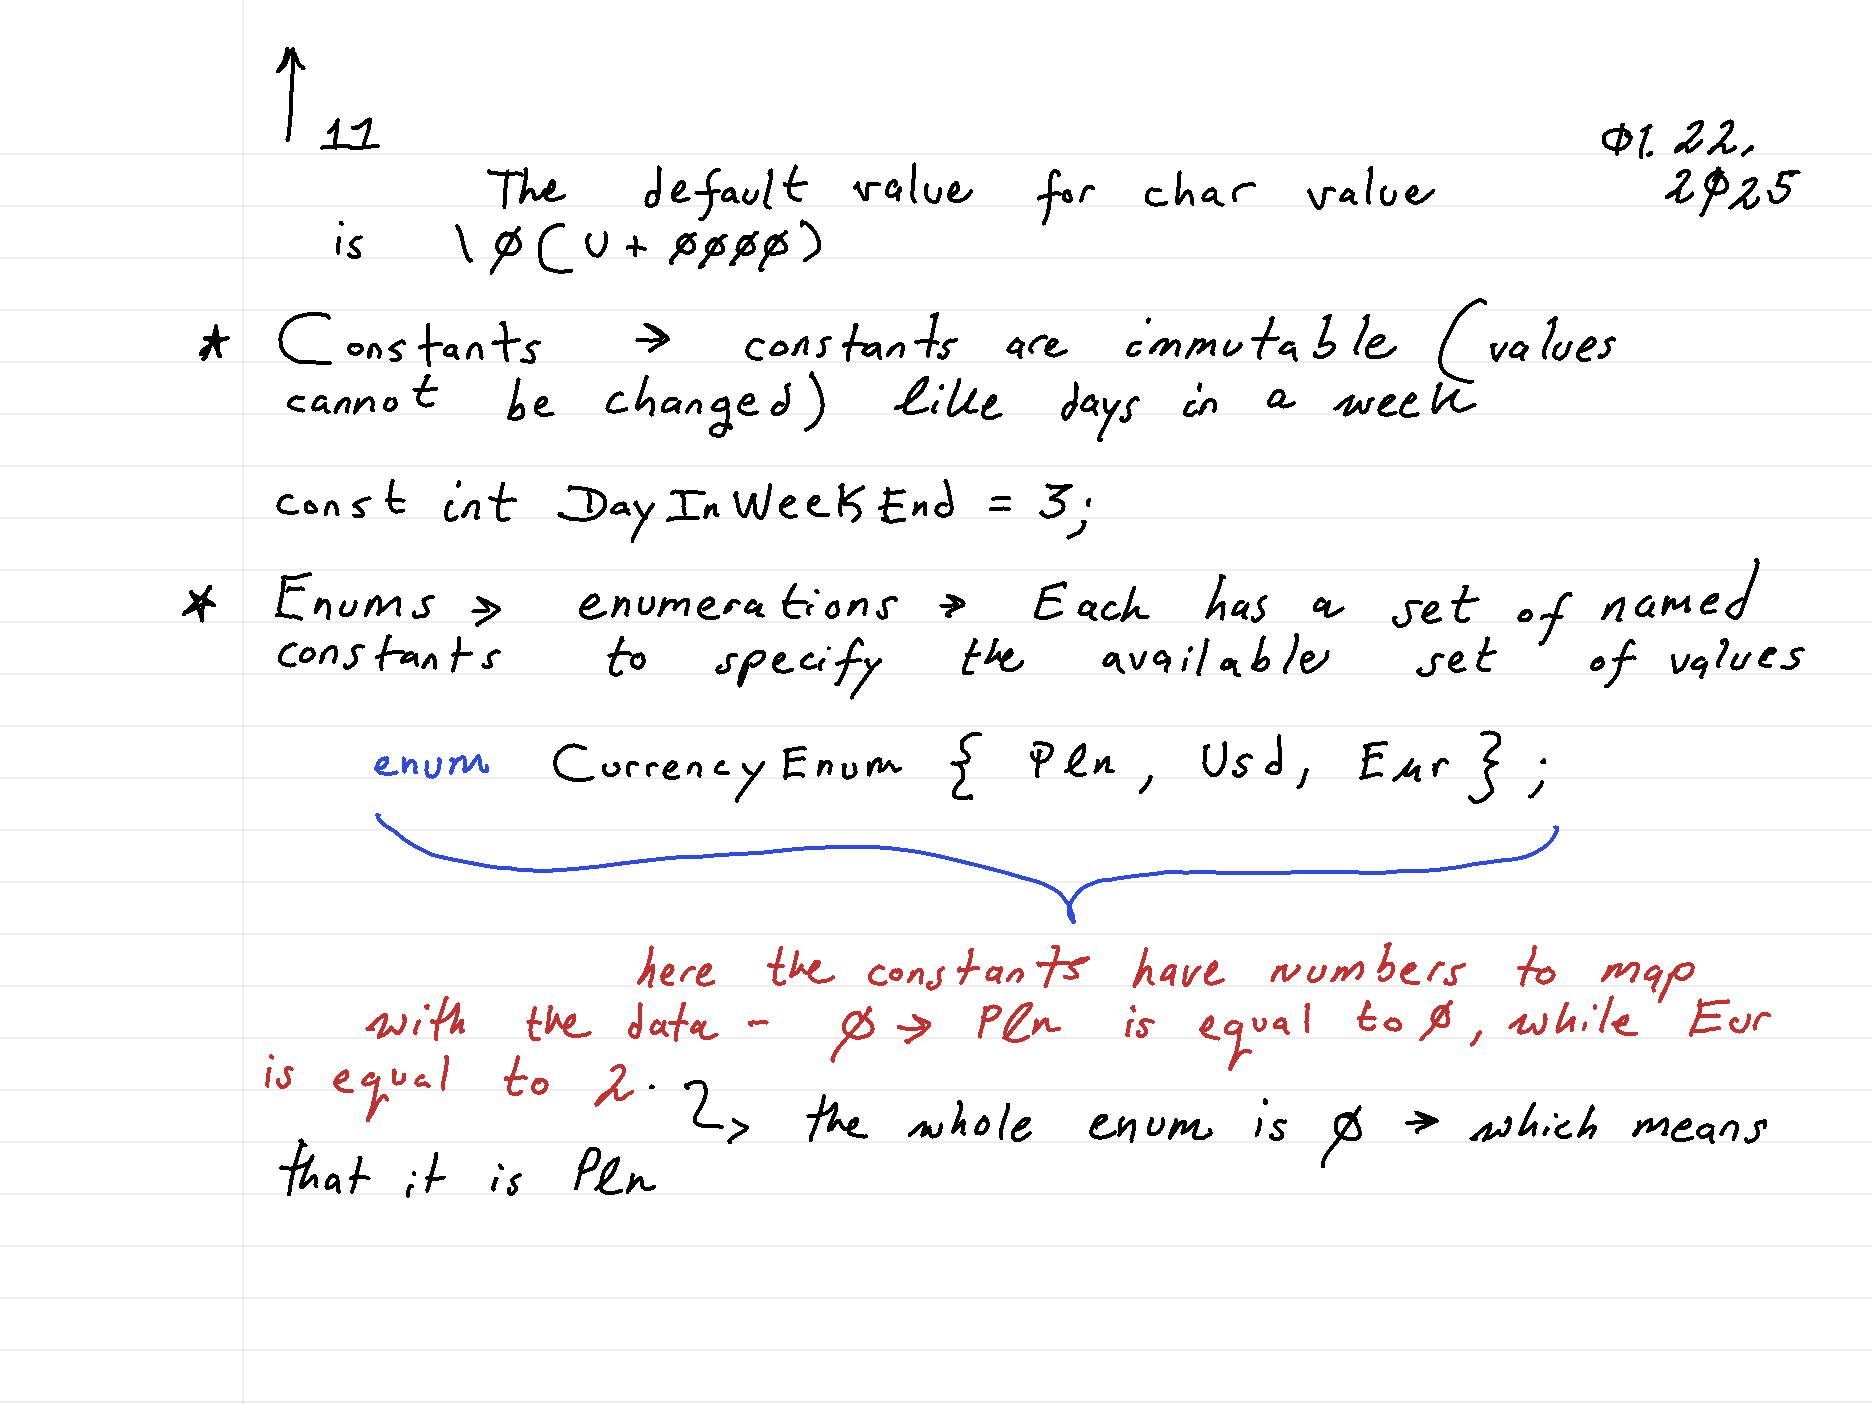 11
Ø1. 22.
2Ø25
The default value for char value
is \Ø(U+ØØØØ)
* Constants → constants are immutable (values
cannot be changed) like days in a week
const int DayInWeekEnd = 3;
* Enums → enumerations → Each has a set of named
constants to specify the available set of values
enum CurrencyEnum { Pln, Usd, Eur };
here the constants have numbers to map
with the data - Ø → Pln is equal to Ø, while Eur
is equal to 2.
→ the whole enum is Ø → which means
that it is Pln